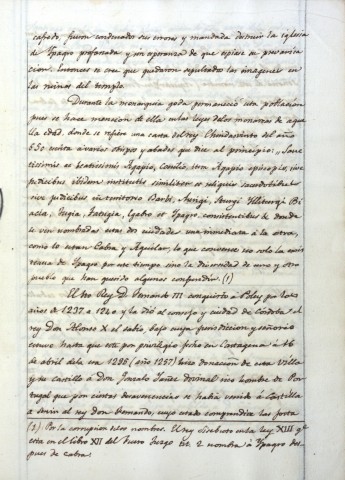 cañedo, fueron condenados sus errores y mandada destruir la iglesia
de Ypagro profanada y sin esperanza de que copiase su prevarica
cion. Entonces se cree que quedaron sepultadas las imagenes en
las ruinas del templo.
Durante la monarquia goda permaneció esta poblacion
pues se hace mencion de ella en las leyes de los monarcas de aque
lla edad, donde se refiere una carta del rey Chindasvinto del año
650 escrita á varios obispos y abades que dice al principio: "Sanc
tissimis ac beatissimis Agapio, Cecilio, item Agapio episcopis, sive
judicibus ibidem institutis similiter et reliquis sacerdotibus
sive judicibus in territorio Barbi, Aurigi, Sturgi Yliturgi Bi
acia, Tugia, Tatugia, Egabro et Ypagro consistentibus &c donde
se ven nombradas estas dos ciudades una inmediata á la otra,
como lo estan Cabra y Aguilar, lo que convence no solo la exis
tencia de Ypagro por este tiempo sino la diversidad de uno y otro
pueblo que han querido algunos confundir. (1)
El Sto Rey D. Fernando III conquistó á Poley por los
años de 1237 a 1240 y la dió al consejo y ciudad de Córdoba el
rey don Alonso X el sabio bajo cuya jurisdiccion y señorio
estuvo hasta que este por privilegio fecho en Cartagena á 16
de abril de la era 1295 (año 1257) hizo donacion de esta Villa
y su castillo á Don Gonzalo Yañez Dovinal rico hombre de Por
tugal que por ciertas desavenencias se habia venido á Castilla
a servir al rey don Fernando, cuyo estado comprendia las forta
(1) Por la corrupcion de los nombres. El rey Sisebuto en la ley XIII qe
esta en el libro XII del Fuero Juzgo tit. 2 nombra á Ypagro des
pues de Cabra.